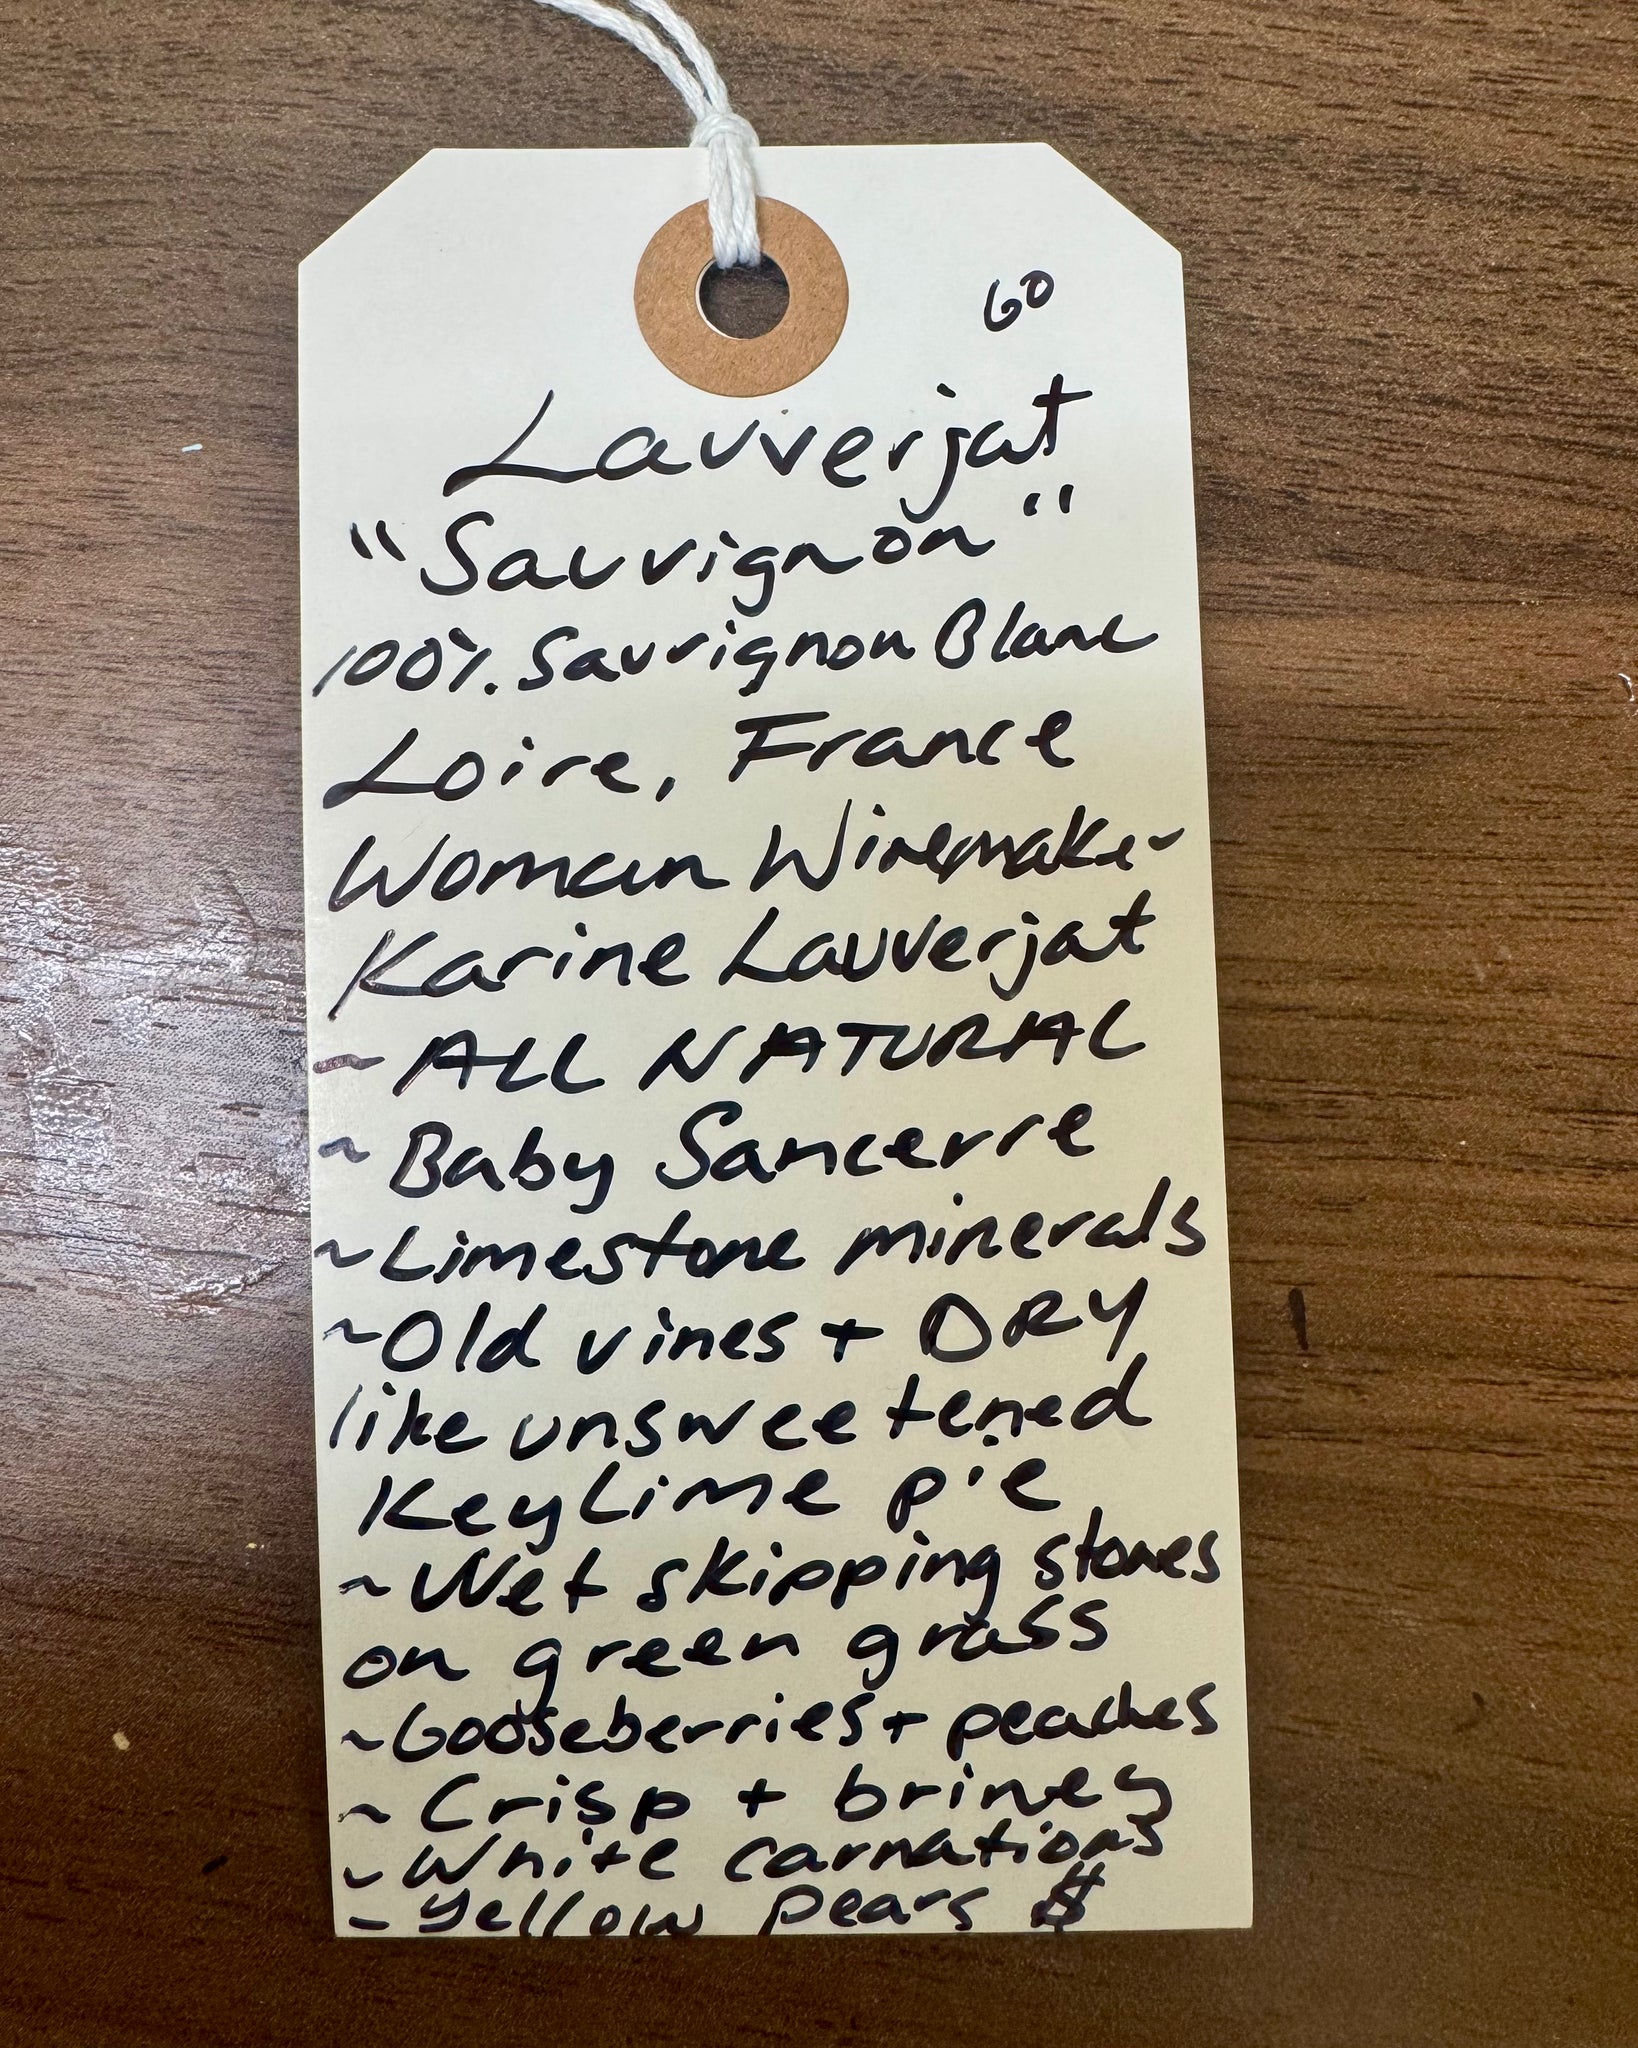 60
Lauverjat
"Sauvignon"
100% Sauvignon Blanc
Loire, France
Woman Winemaker
Karine Lauverjat
~ ALL NATURAL
~ Baby Sancerre
~ Limestone minerals
~ Old vines + DRY
like unsweetened
Key Lime pie
~ Wet skipping stones
on green grass
~ Gooseberries + peaches
~ Crisp + briney
~ White carnations
~ Yellow pears $